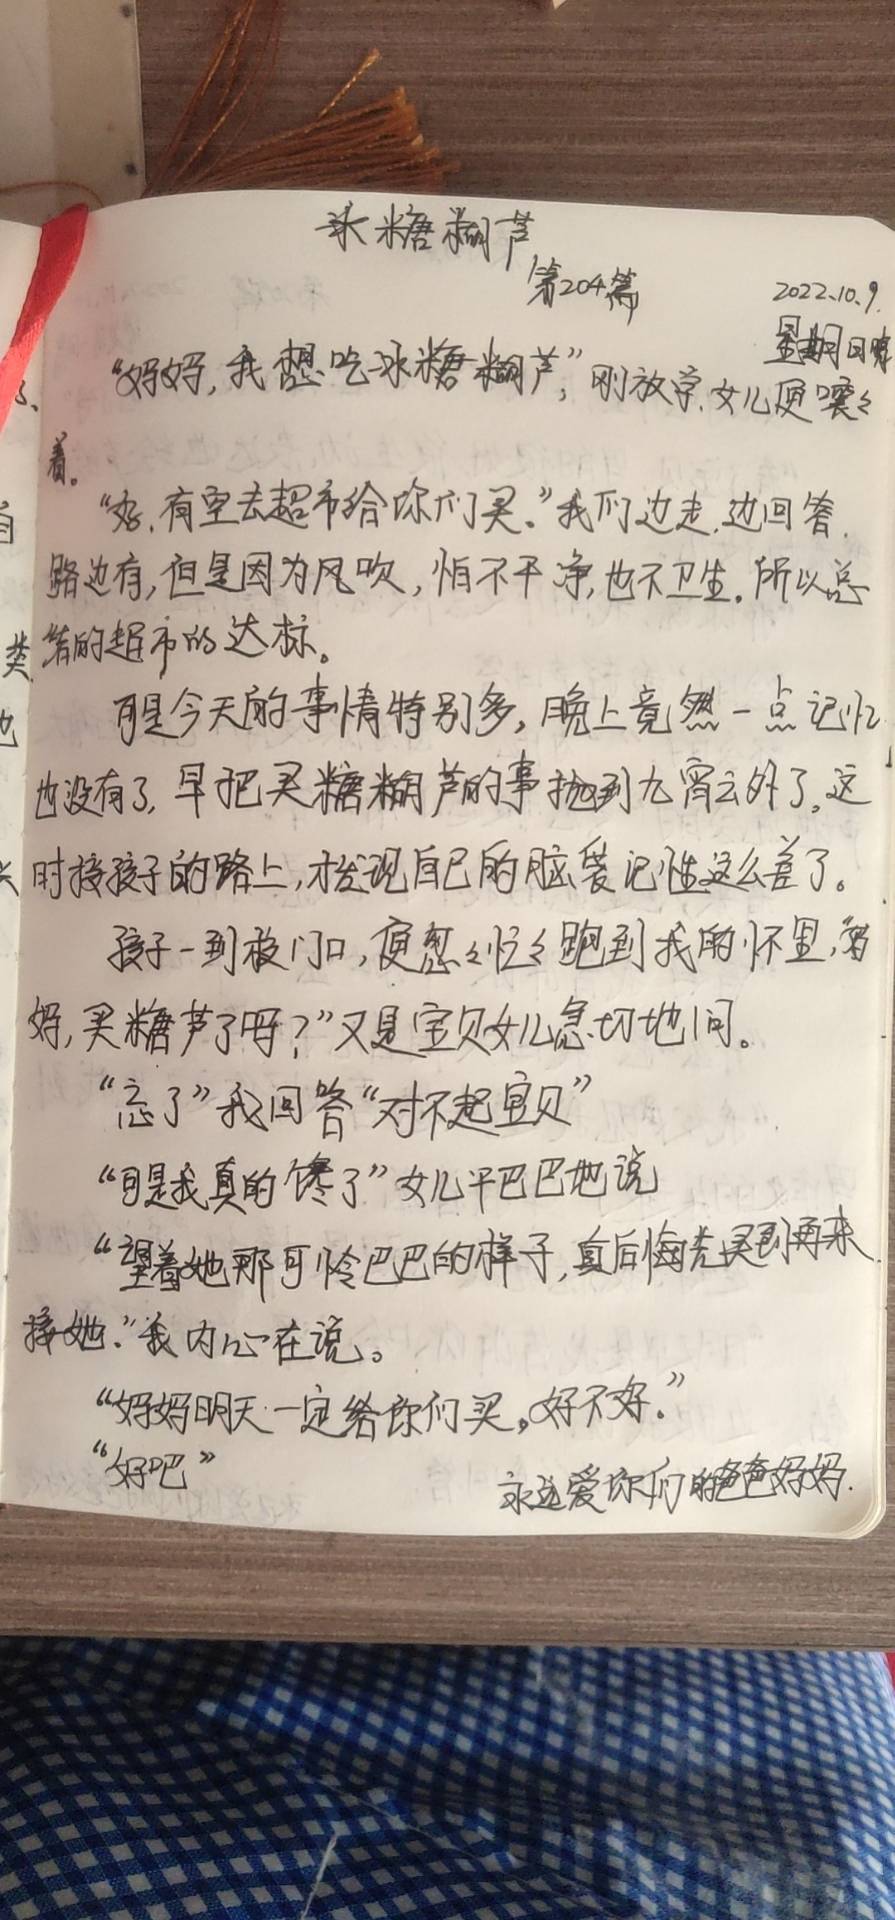 冰糖糊芦
第204篇
2022.10.9.
星期日晴
“妈妈，我想吃冰糖糊芦”，刚放学，女儿便嚷々
着。
“好，有空去超市给你们买。”我们边走，边回答，
路边有，但是因为风吹，怕不干净，也不卫生。所以总
结的超市的达标。
可是今天的事情特别多，晚上竟然一点记忆
也没有了，早把买糖糊芦的事抛到九宵云外了，这
时接孩子的路上，才发现自已的脑袋记性这么差了。
孩子一到校门口，便忽々忙々跑到我的怀里，“妈
妈，买糖芦了吗？”又是宝贝女儿急切地问。
“忘了”我回答“对不起宝贝”
“可是我真的馋了”女儿干巴巴地说
“望着她那可怜巴巴的样子，真后悔先买到再来
接她。”我内心在说。
“妈妈明天一定给你们买，好不好。”
“好吧”
永远爱你们的爸爸妈妈.
类
也
自